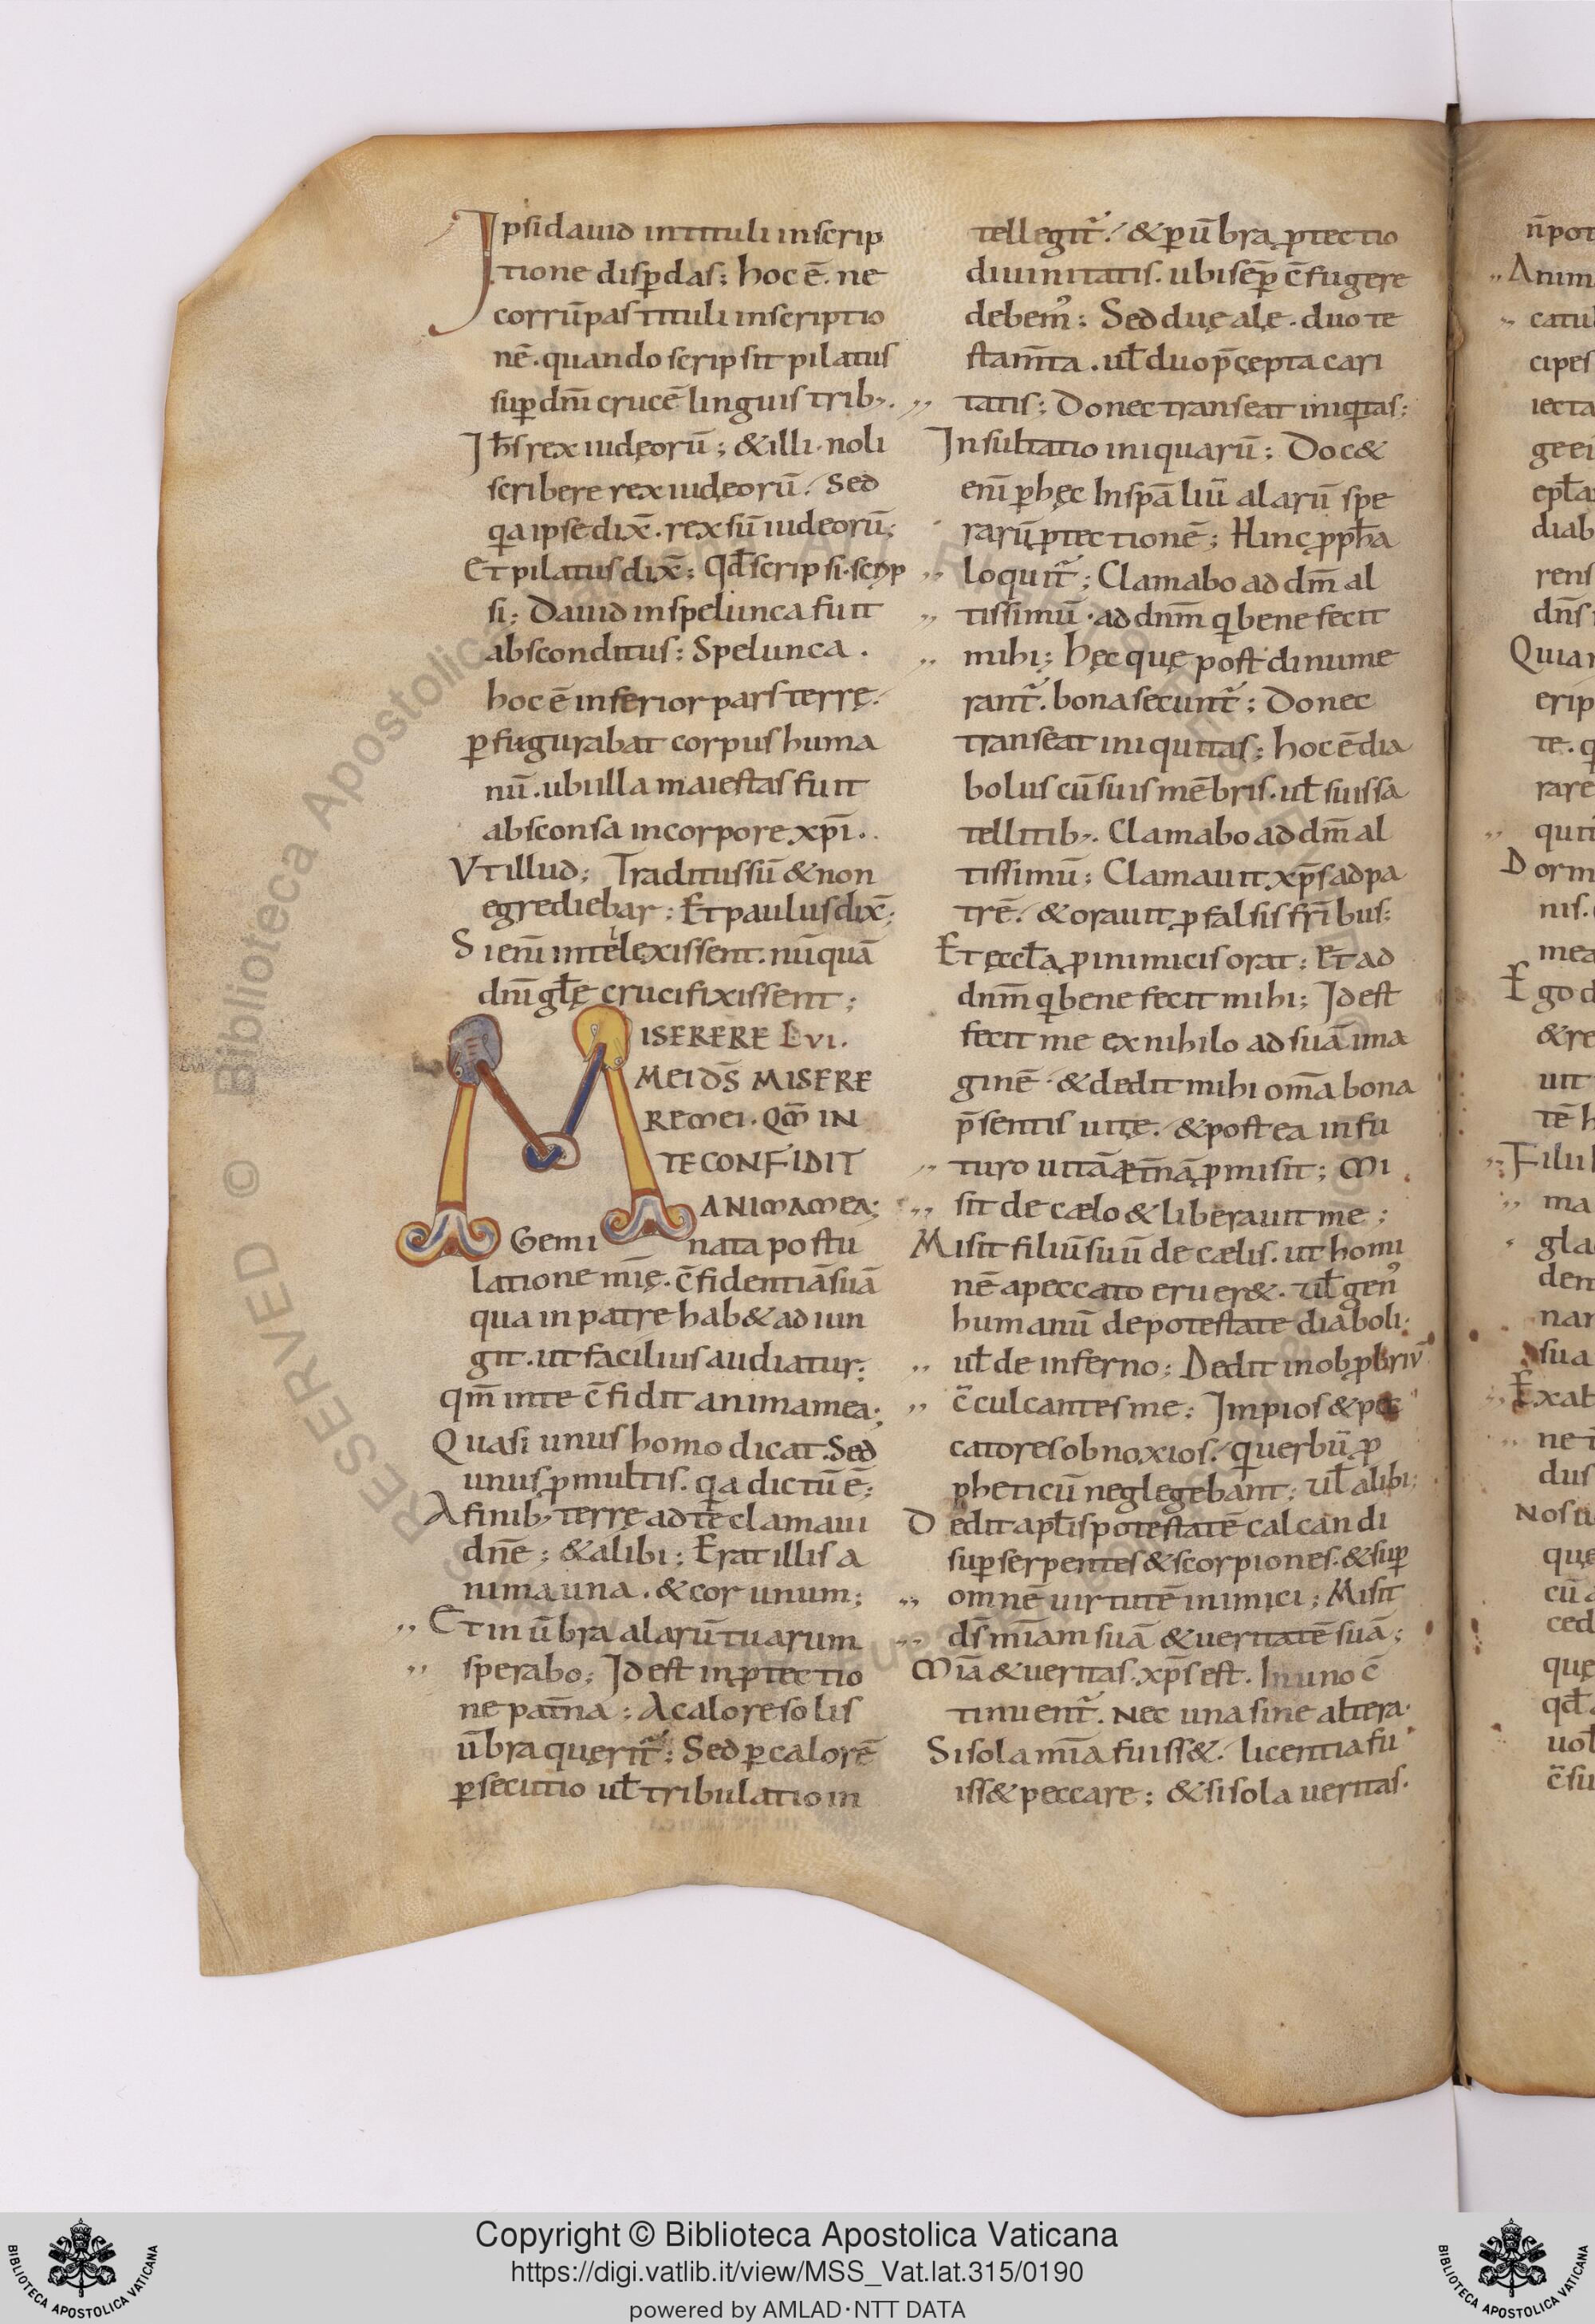 Ipsi dauid in tituli inscrip
tione disp̱das; hoc ē. ne
corrūpas tituli inscriptio
nē. quando scripsit pilatus
sup̱ dn̄i crucē linguis trib;.
Ih̄s rex iudęorū; & illi. noli
scribere rex iudęorū. Sed
qa ipse dix̄. rex sū iudeorū;
Et pilatus dix̄; Qd̄ scripsi. scrip
si; Dauid in spelunca fuit
absconditus; Spelunca.
hoc ē inferior pars terrę.
p̱fugurabat corpus huma
nū. ubi illa maiestas fuit
absconsa in corpore xp̄i.
Vt illud; Traditus sū & non
egrediebar; Et paulus dix̄;
Si enī intellexissent. nūquā
dn̄i gl̄ę crucifixissent;
MISERERE LVI.
MEI DS̄ MISERE
RE MEI. QM̄ IN
TE CONFIDIT
ANIMA MEA;
Gemi nata postu
latione mīę. c̄fidentiā suā
qua in patre hab& adiun
git. ut facilius audiatur;
qm̄ in te c̄fidit anima mea;
Quasi unus homo dicat. Sed
unus p̱ multis. qa dictū ē;
A finib; terrę ad te clamaui
dn̄e; & alibi; Erat illis a
nima una. & cor unum;
,, Et in ūbra alarū tuarum
,, sperabo; Id est in p̱tectio
ne pat̄na; A calore solis
ūbra querit̄; Sed p̱ calorē
p̱secutio ul̄ tribulatio in
tellegit̄. & p̱ ūbra p̱tectio
diuinitatis. ubi sēp̱ c̄fugere
debem᾽; Sed duę alę. duo te
stam̄ta. ul̄ duo p̄cepta cari
,, tatis; Donec transeat iniqitas;
Insultatio iniquarū; Doc&
enī p̱ hęc In spāliū alarū spe
rarū p̱tectionē; Hinc p̱ph̄a
,, loquit̄; Clamabo ad dm̄ al
,, tissimū. ad dnm̄ qi bene fecit
,, mihi; hęc quę post dinume
rant̄. bona secunt̄; Donec
transeat iniquitas; hoc ē dia
bolus cū suis mēbris. ul̄ suis sa
tellitib;. Clamabo ad dm̄ al
tissimū; Clamauit xp̄s ad pa
trē. & orauit p̱ falsis fr̄ibus;
Et ęccl̄a p̱ inimicis orat; Et ad
dnm̄ qi bene fecit mihi; Id est
fecit me ex nihilo ad suā ima
ginē. & dedit mihi om̄a bona
p̄sentis uitę. & postea in fu
,, turo uitā æt̄nā p̱misit; Mi
,, sit de cælo & liberauit me;
Misit filiū suū de cælis. ut homi
nē a peccato eruer&. ul̄ gen᾽
humanū de potestate diaboli.
,, ul̄ de inferno; Dedit in obp̱briū
,, c̄culcantes me; Impios & pec
catores obnoxios. qi uerbū p̱
pheticū neglegebant; ul̄ alibi;
Dedit apl̄is potestatē calcandi
sup̱ serpentes & scorpiones. & sup̱
,, omnē uirtutē inimici; Misit
,, ds̄ mīam suā & ueritatē suā;
Mīa & ueritas. xp̄s est. In uno c̄
tinuent̄. Nec una sine altera.
Si sola mīa fuiss&. licentia fu
iss& peccare; & si sola ueritas.
Copyright © Biblioteca Apostolica Vaticana
https://digi.vatlib.it/view/MSS_Vat.lat.315/0190
powered by AMLAD·NTT DATA